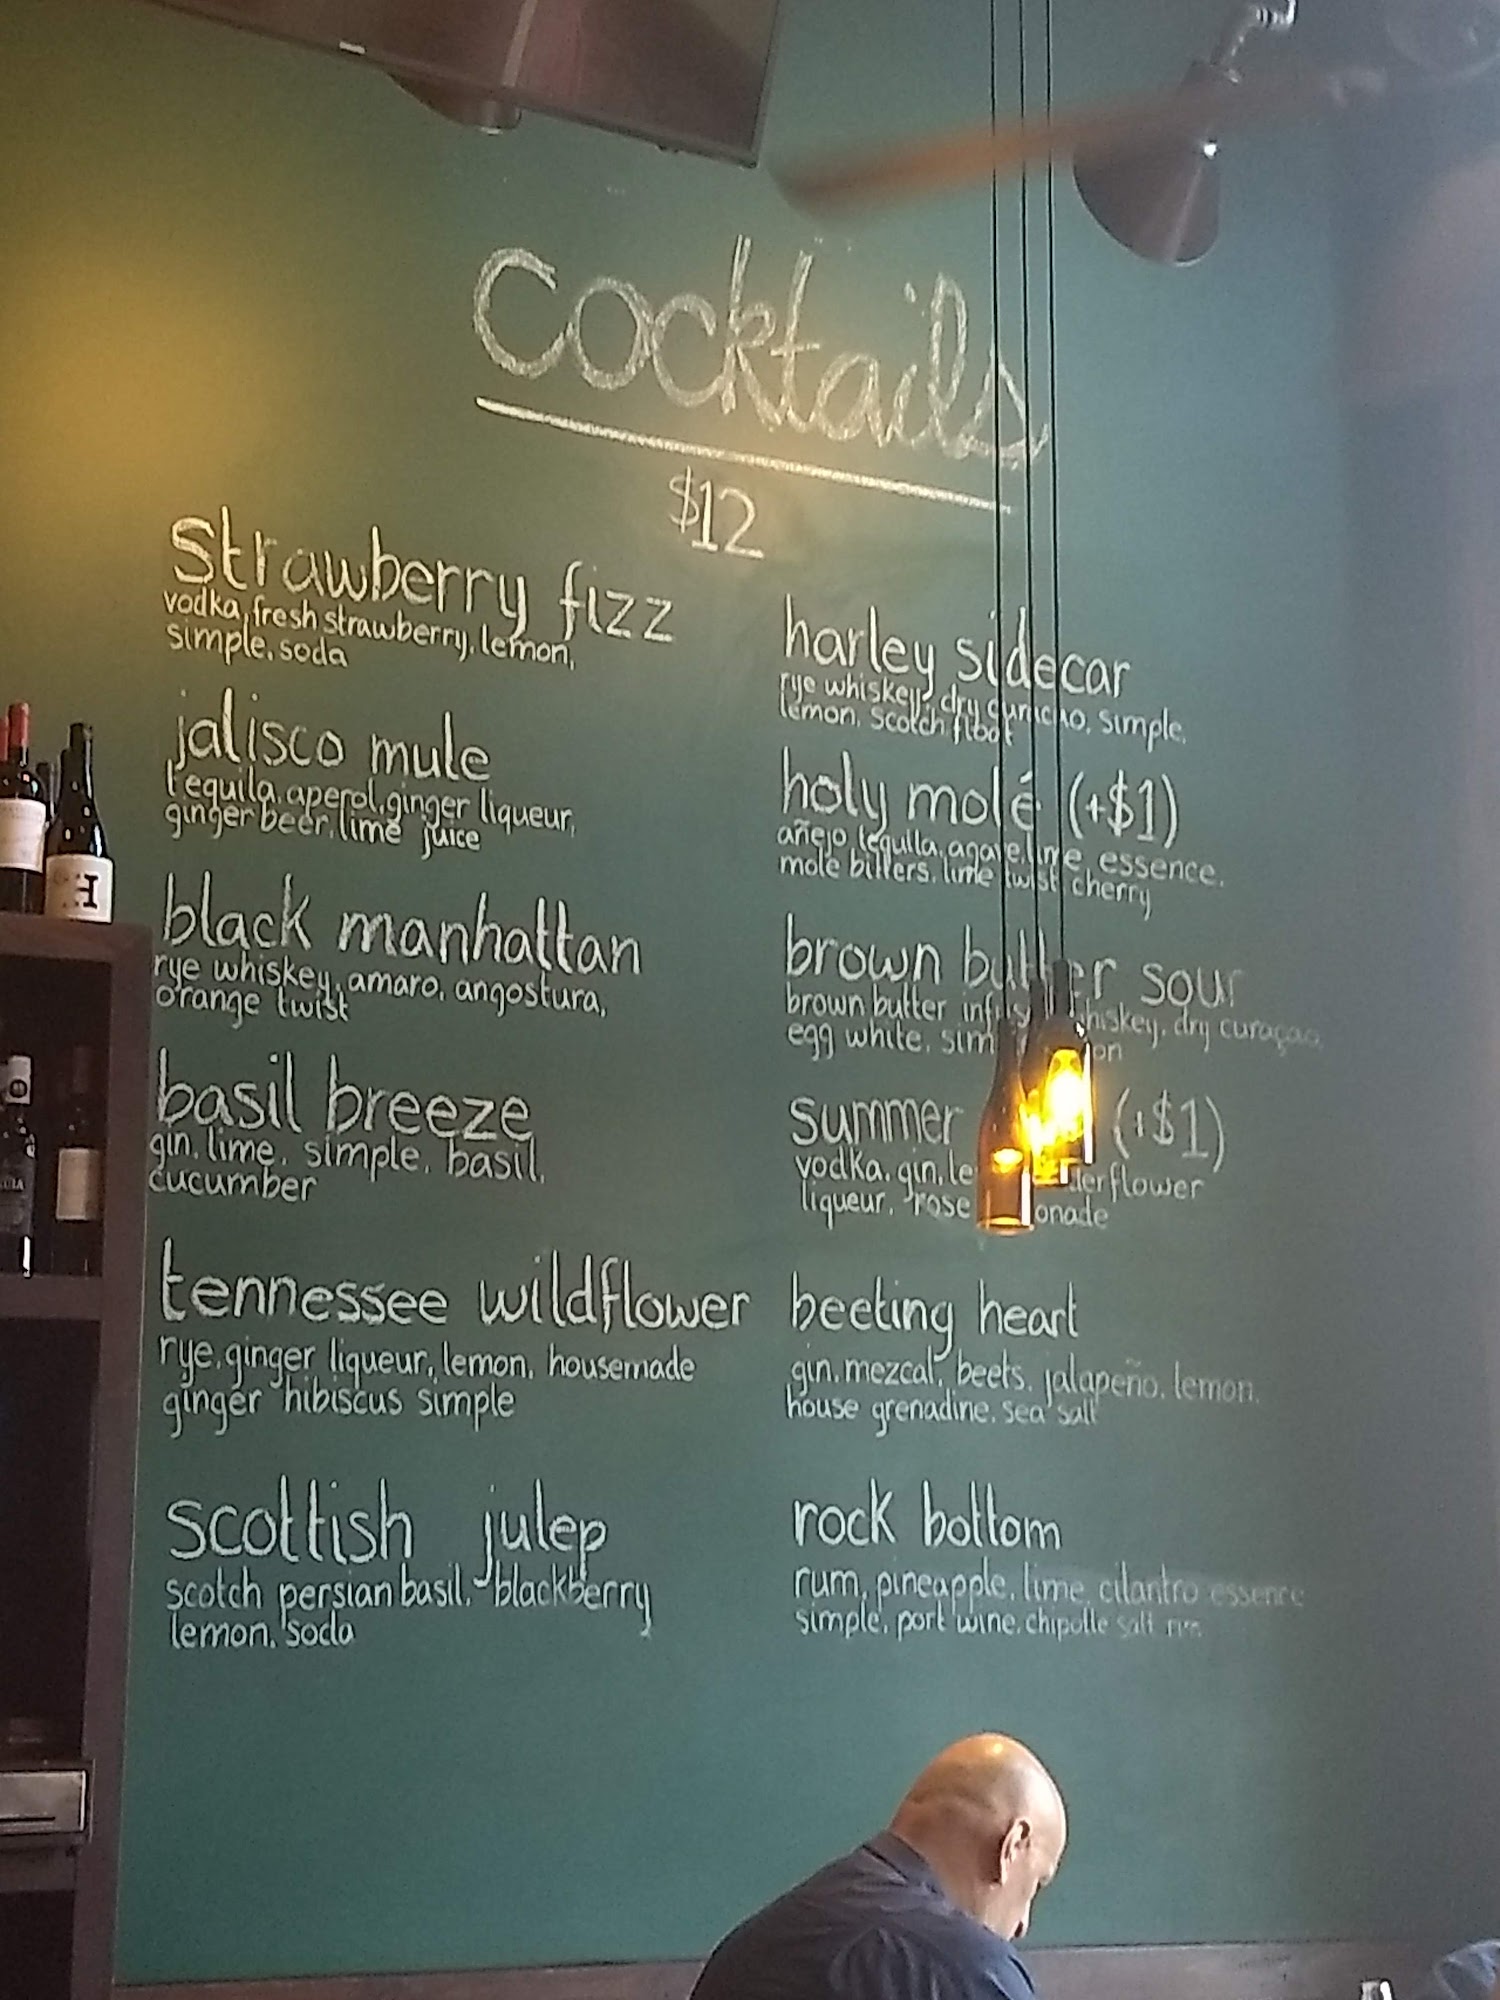 Cocktails
$12
strawberry fizz
vodka, fresh strawberry, lemon,
simple, soda
jalisco mule
tequila, aperol, ginger liqueur,
ginger beer, lime juice
black manhattan
rye whiskey, amaro, angostura,
orange twist
basil breeze
gin, lime, simple, basil,
cucumber
tennessee wildflower
rye, ginger liqueur, lemon, housemade
ginger hibiscus simple
scottish julep
scotch persian basil, blackberry
lemon, soda
harley sidecar
rye whiskey, dry curacao, simple,
lemon, scotch float
holy molé (+$1)
añejo tequila, agave, lime, essence,
mole bitters, lime twist cherry
brown butter sour
brown butter whiskey, dry curaçao,
egg white,
summer (+$1)
vodka, gin,
liqueur, rose
beeting heart
gin, mezcal, beets, jalapeño, lemon,
house grenadine, sea salt
rock bottom
rum, pineapple, lime, cilantro essence
simple, port wine, chipotle salt rim
H